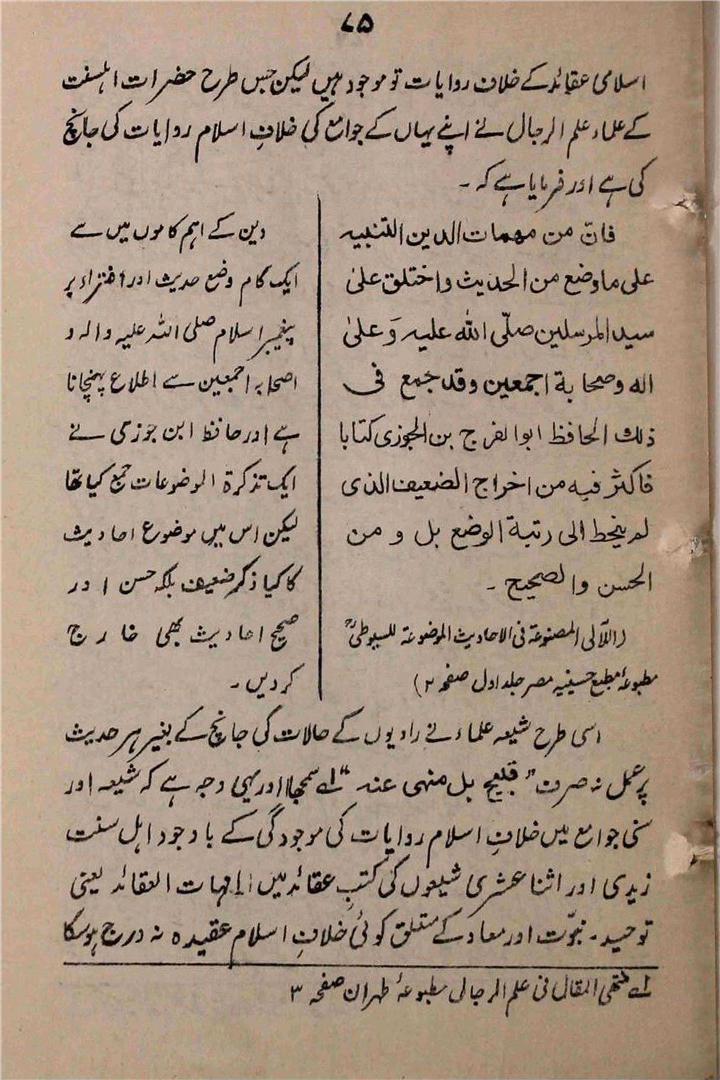 ۷۵
اسلامی عقائد کے خلاف روایات تو موجود ہیں لیکن جس طرح حضرات اہلسنت
کے علماء علم الرجال نے اپنے یہاں کے جوامع کی خلافِ اسلام روایات کی جانچ
کی ہے اور فرمایا ہے کہ ۔
فانّ من مہمات الدین التنبیہ
علی ماوضع من الحدیث واختلق علیٰ
سید المرسلین صلّی اللہ علیہ وَعلیٰ
الہ وصحابة اجمعین وقد جمع فی
ذلک الحافظ ابوالفرج بن الجوزی کتابا
فاکثر فیہ من اخراج الضعیف الذی
لم ینحط الی رتبة الوضع بل و من
الحسن والصحیح ۔
(اللآلی المصنوعة فی الاحادیث الموضوعة للسیوطیؒ
مطبوعۂ مطبع حسینیہ مصر جلد اول صفحہ ۲)
دین کے اہم کاموں میں سے
ایک کام وضع حدیث اور افتراء پر
پیغمبر اسلام صلی اللہ علیہ والہ و
اصحابہ اجمعین سے اطلاع پہنچانا
ہے اور حافظ ابن جوزی نے
ایک تذکرة الموضوعات جمع کیا تھا
لیکن اس میں موضوع احادیث
کا کیا ذکر ضعیف بلکہ حسن اور
صحیح احادیث بھی خارج
کردیں ۔
اسی طرح شیعہ علماء نے راویوں کے حالات کی جانچ کے بغیر ہر حدیث
پر عمل نہ صرف "قبیح بل منہی عنہ" لے سمجھا اور یہی وجہ ہے کہ شیعہ اور
سنی جوامع میں خلافِ اسلام روایات کی موجودگی کے باوجود اہل سنت
زیدی اور اثنا عشری شیعوں کی کتبِ عقائد میں امہات العقائد یعنی
توحید ۔ نبوّت اور معاد کے متعلق کوئی خلافِ اسلام عقیدہ نہ درج ہوسکا
لے منتھی المقال فی علم الرجال مطبوعۂ طہران صفحہ ۳